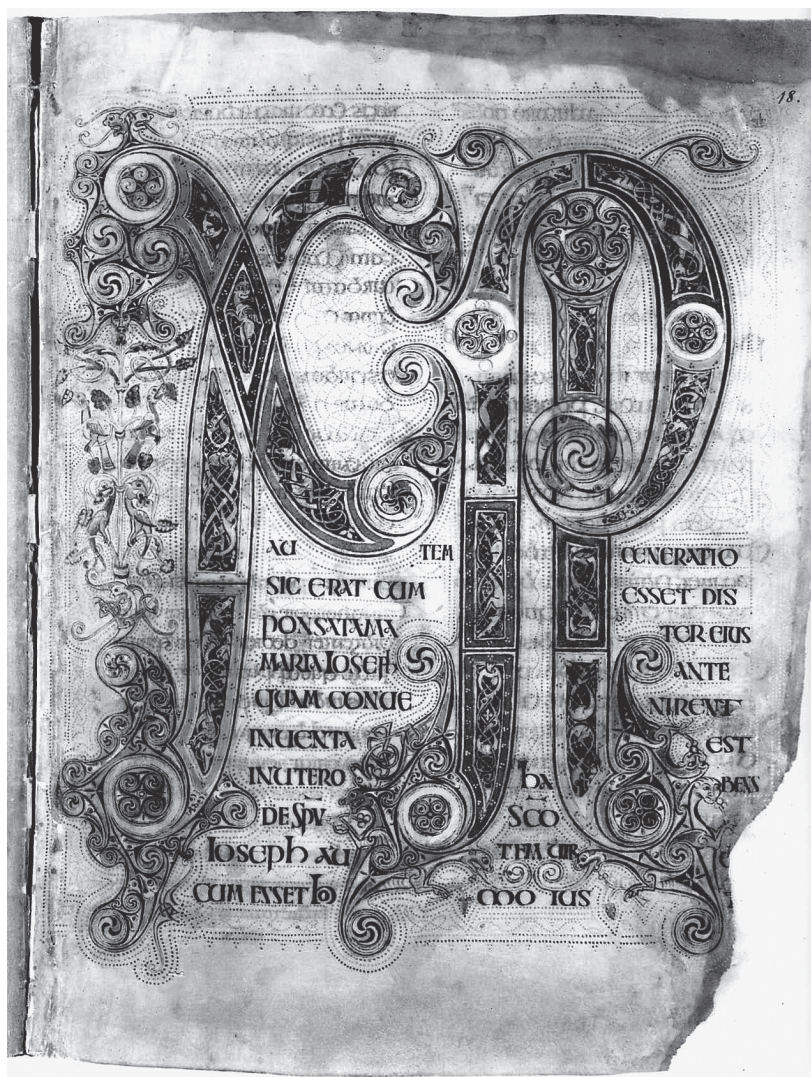 18.
XPI
AU TEM GENERATIO
SIC ERAT CUM ESSET DIS
PONSATA MA TER EIUS
MARIA IOSEPh ANTE
QUAM CONUE NIRENT
INUENTA EST
IN UTERO hA BENS
DE SPŪ SC̄O
Ioseph AU TEM UIR
CUM ESSET hO MO IUS